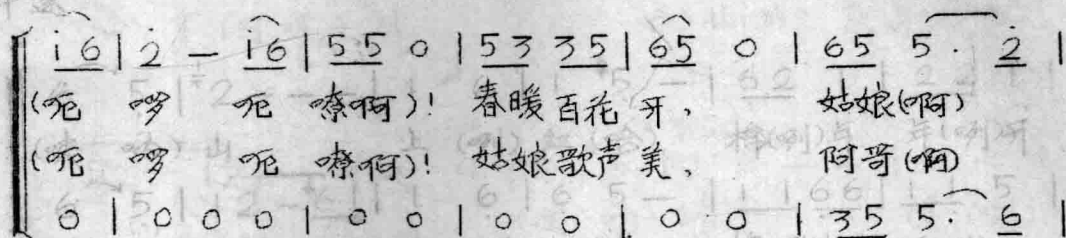 i 6 | 2̇ — i 6 | 5 5 0 | 5 3 3 5 | 6 5 0 | 6 5 5 · 2̇ |
(呃 啰 呃 嘹啊)! 春暖百花 牙, 姑娘(啊)
(呃 啰 呃 嘹啊)! 姑娘歌声 美, 阿哥(啊)
0 | 0 0 0 | 0 0 | 0 0 | 0 0 | 3 5 5 · 6 |